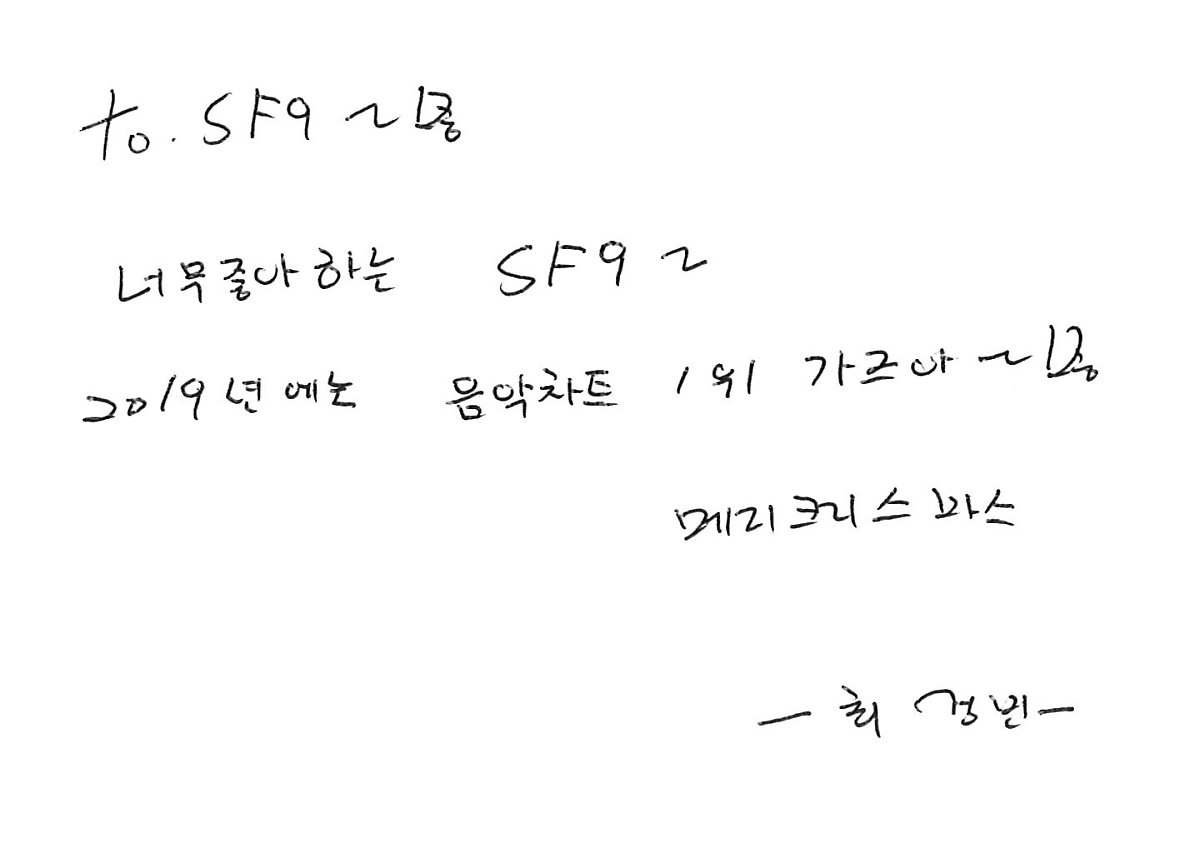 to. SF9 ~
너무좋아하는 SF9 ~
2019년에는 음악차트 1위 가즈아 ~
메리크리스마스
- 최 정빈 -